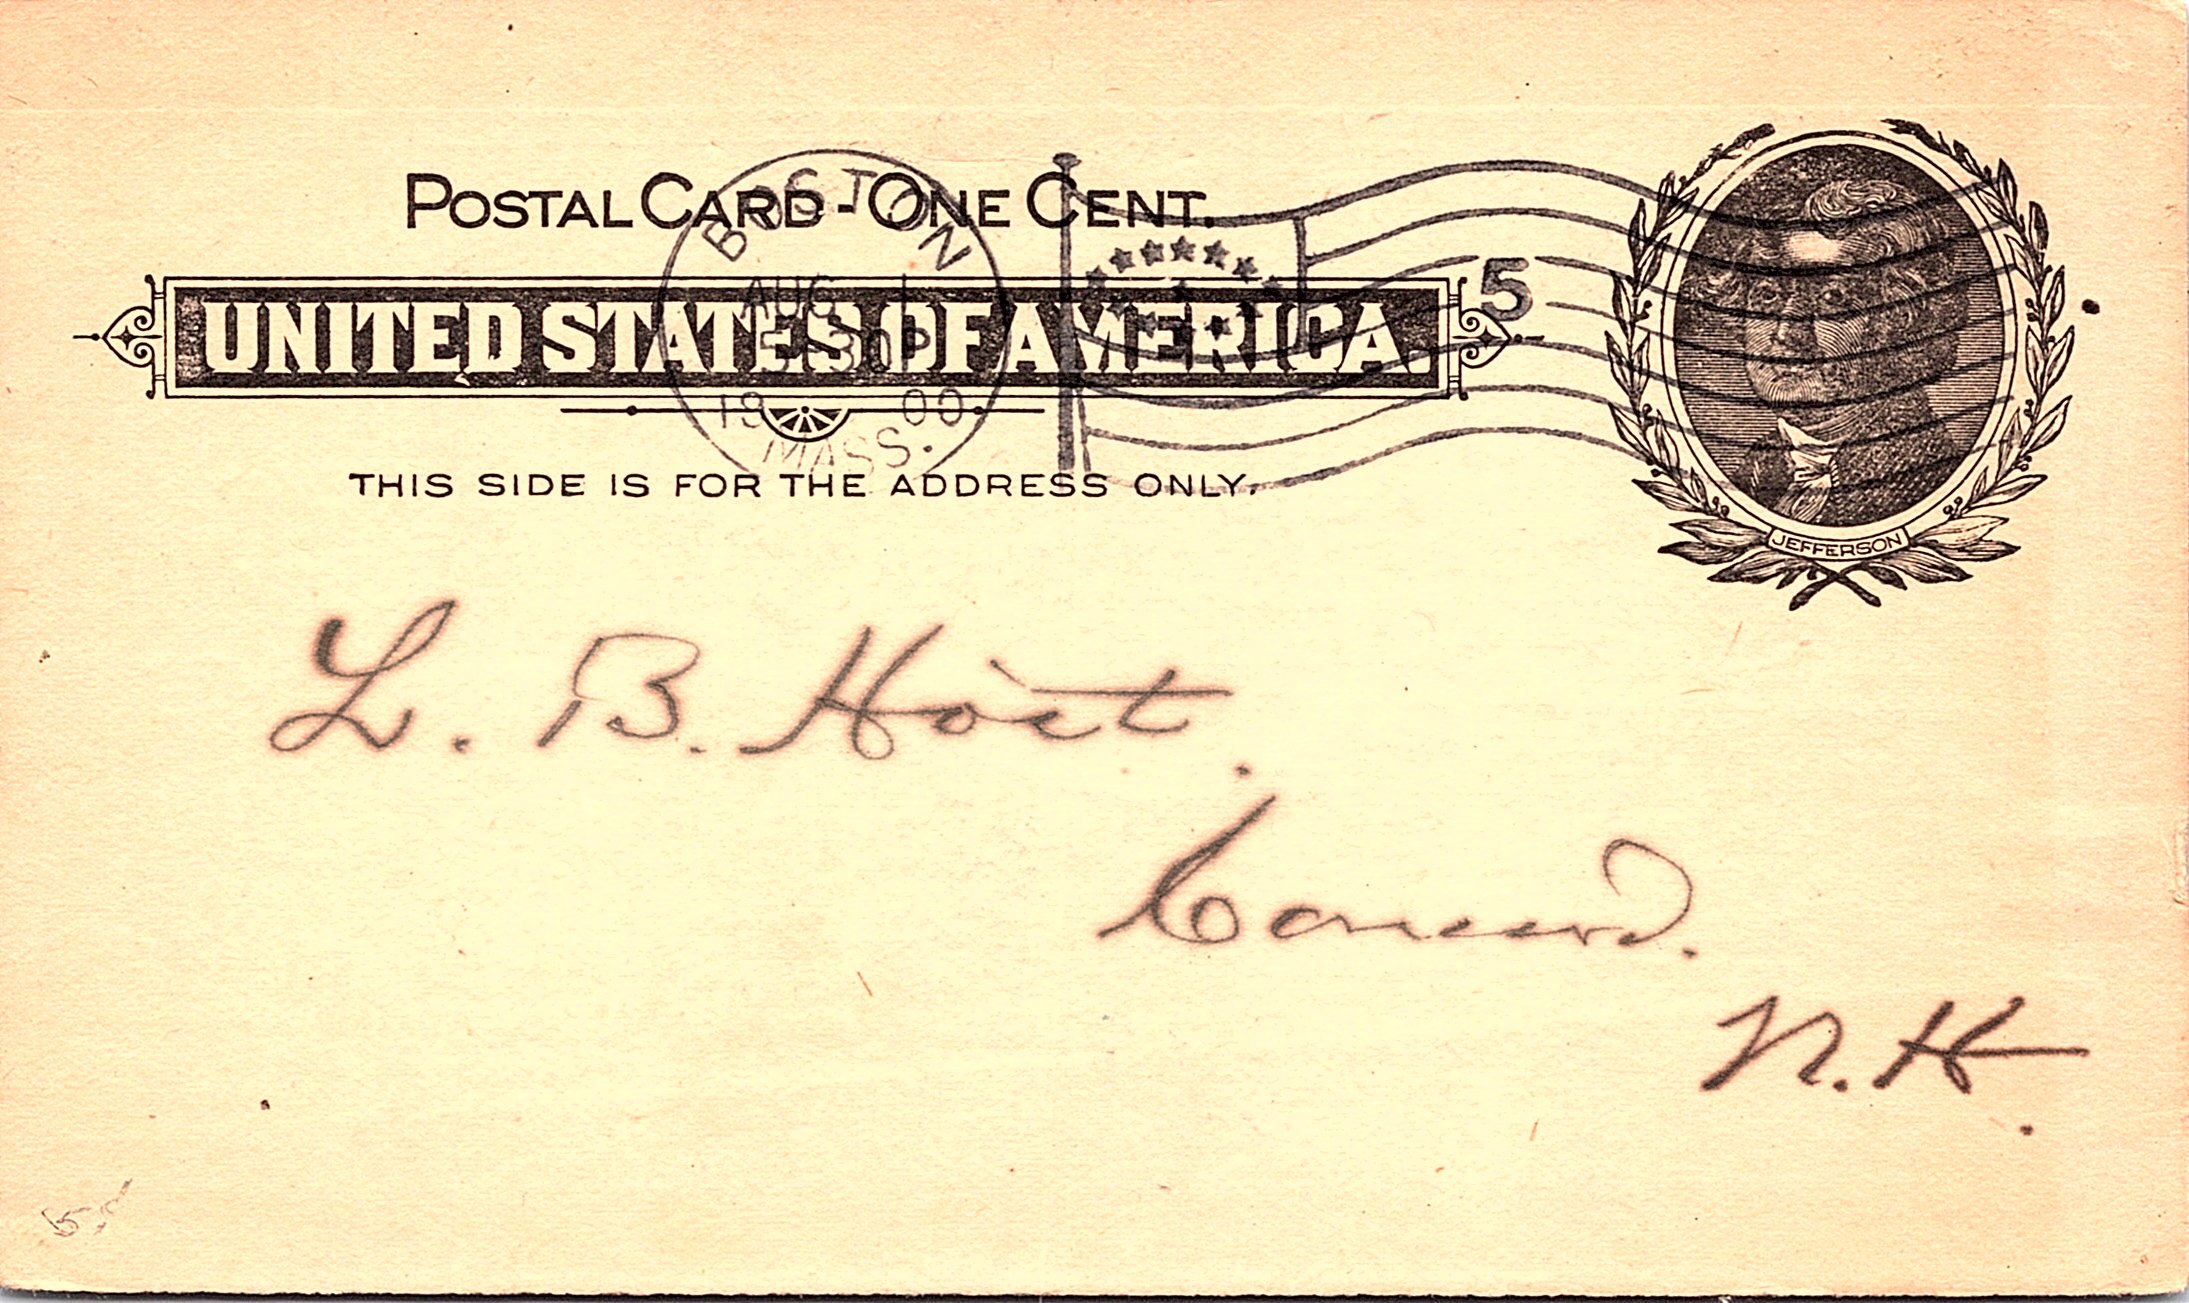 POSTAL CARD - ONE CENT.
UNITED STATES OF AMERICA.
THIS SIDE IS FOR THE ADDRESS ONLY.
BOSTON
AUG 1
5-30P
1900
MASS.
5
JEFFERSON
L. B. Hoit.
Concord.
N. H.